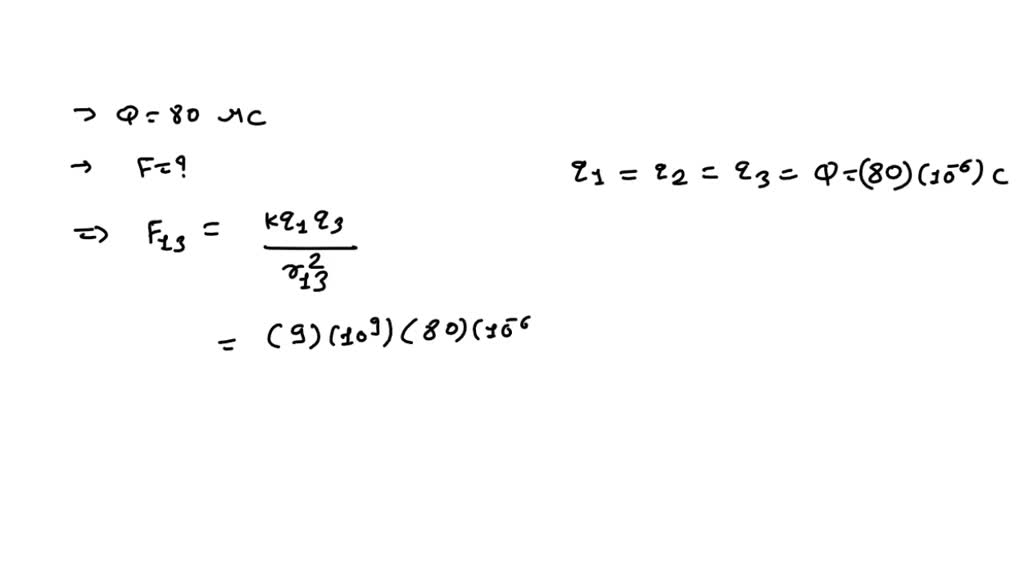 → Q = 80 μC
→ F = ?
q1 = q2 = q3 = Q = (80)(10^-6) C
⇒ F13 = kq1q3 / r13^2
= (9)(10^9)(80)(10^-6